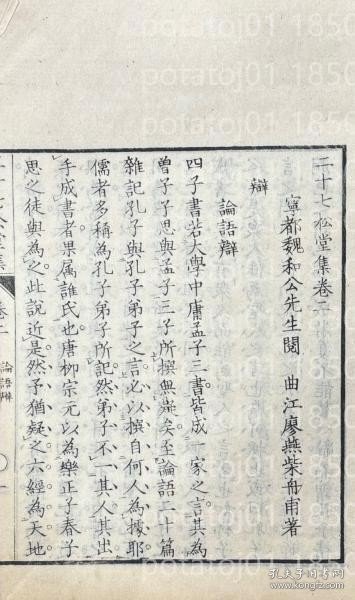 二十七松堂集卷二
寧都魏和公先生閱　曲江廖燕柴舟甫著
辯
論語辯
四子書若大學中庸孟子三書皆成一家之言其為
曾子子思與孟子三子所撰無疑矣至論語二十篇
雜記孔子與孔子弟子之言必以撰自何人為據耶
儒者多稱為孔子弟子所記然弟子不一其人其出
手成書者果屬誰氏也唐柳宗元以為樂正子春子
思之徒與為之此說近是然予猶疑之六經為天地
論語辯
potatoj01 1850
孔夫子旧书网